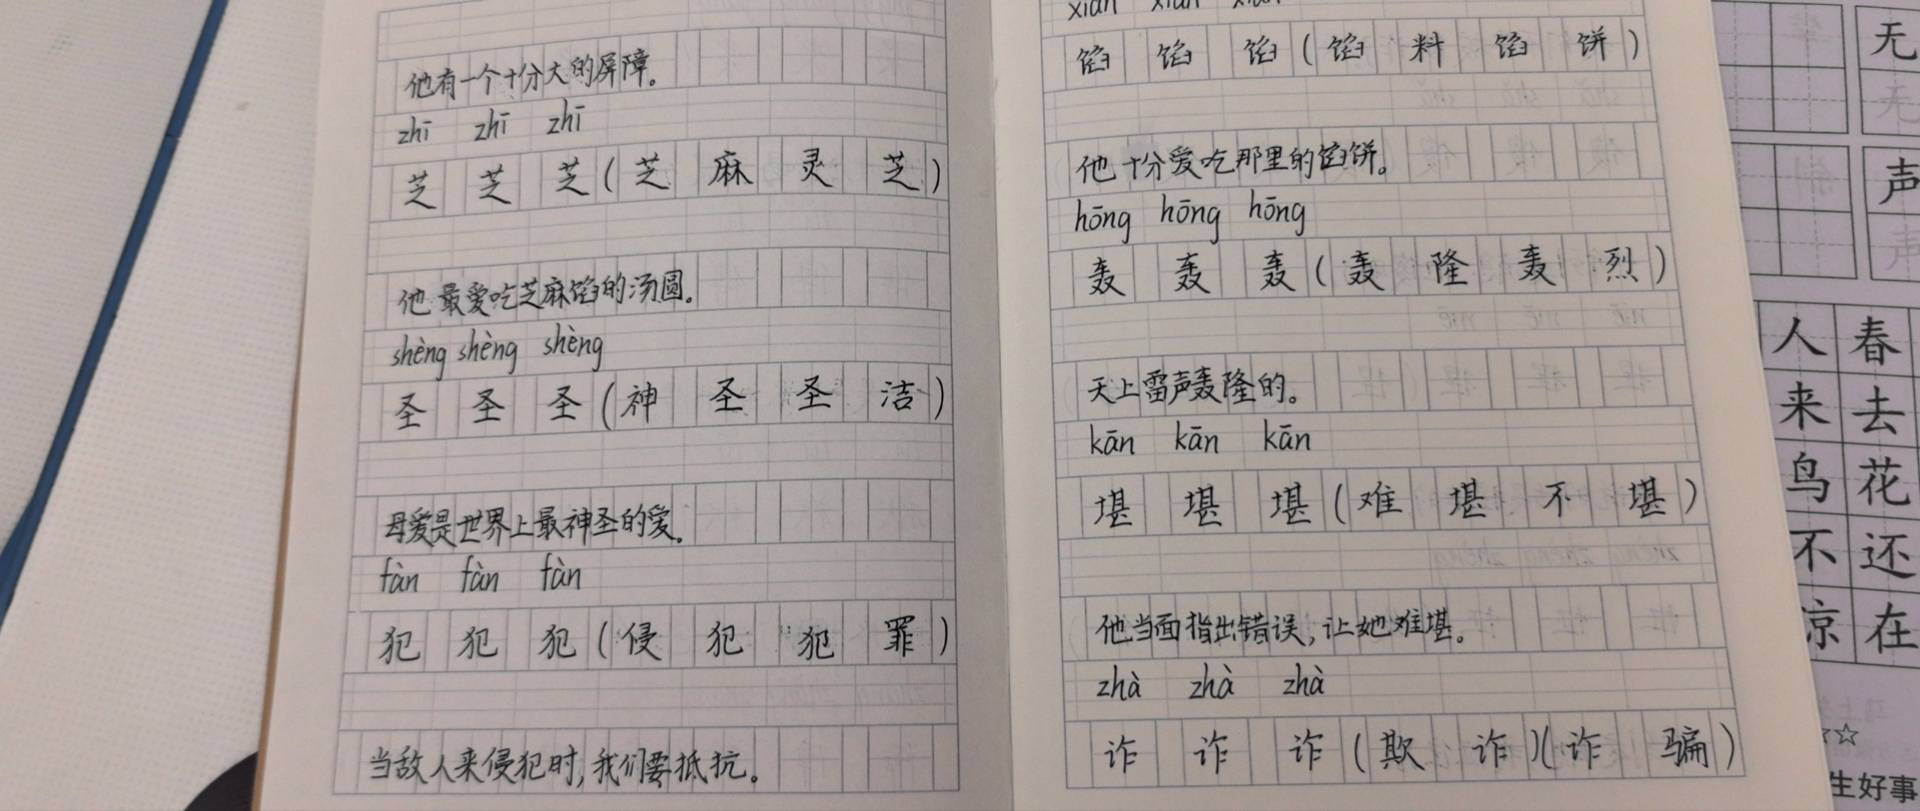 他有一个十分大的屏障。
zhī zhī zhī
芝 芝 芝(芝麻灵芝)
他最爱吃芝麻馅的汤圆。
shèng shèng shèng
圣 圣 圣(神圣圣洁)
母爱是世界上最神圣的爱。
fàn fàn fàn
犯 犯 犯(侵犯犯罪)
当敌人来侵犯时,我们要抵抗。
xiàn xiàn xiàn
馅 馅 馅(馅料馅饼)
他十分爱吃那里的馅饼。
hōng hōng hōng
轰 轰 轰(轰隆轰烈)
天上雷声轰隆的。
kān kān kān
堪 堪 堪(难堪不堪)
他当面指出错误,让她难堪。
zhà zhà zhà
诈 诈 诈(欺诈)(诈骗)
无
声
人 春
来 去
鸟 花
不 还
凉 在
☆☆
生好事